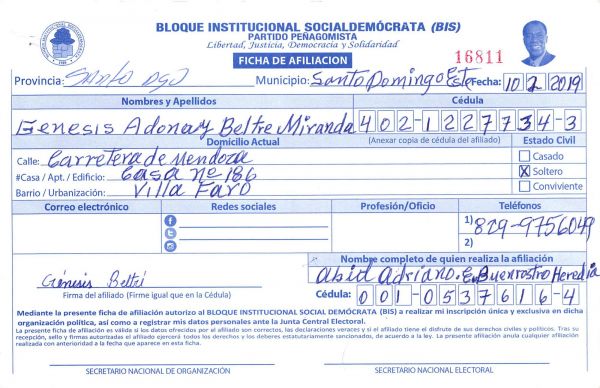 BLOQUE INSTITUCIONAL SOCIALDEMÓCRATA (BIS)
PARTIDO PEÑAGOMISTA
Libertad, Justicia, Democracia y Solidaridad
FICHA DE AFILIACION
16811
Provincia: Santo Dgo Municipio: Santo Domingo Este Fecha: 10 2 2019
Nombres y Apellidos Cédula
Genesis Adonay Beltre Miranda 402-1227734-3
Domicilio Actual (Anexar copia de cédula del afiliado) Estado Civil
Calle: Carretera de Mendoza Casado
#Casa / Apt. / Edificio: Casa nº 186 X Soltero
Barrio / Urbanización: Villa Faro Conviviente
Correo electrónico Redes sociales Profesión/Oficio Teléfonos
1) 829-9756049
2)
Nombre completo de quien realiza la afiliación
Génesis Beltré Abid Adriano. E. Buenrostro Heredia
Firma del afiliado (Firme igual que en la Cédula) Cédula: 001-0537616-4
Mediante la presente ficha de afiliación autorizo al BLOQUE INSTITUCIONAL SOCIAL DEMÓCRATA (BIS) a realizar mi inscripción única y exclusiva en dicha
organización política, así como a registrar mis datos personales ante la Junta Central Electoral.
La presente ficha de afiliación es válida si los datos ofrecidos por el afiliado son correctos, las declaraciones veraces y si el afiliado tiene el disfrute de sus derechos civiles y políticos. Tras su
recepción, sello y firmas autorizadas el afiliado ejercerá todos los derechos y los deberes estatutariamente sancionados, de acuerdo a la ley. La presente afiliación anula cualquier afiliación
realizada con anterioridad a la fecha que aparece en esta ficha.
SECRETARIO NACIONAL DE ORGANIZACIÓN SECRETARIO NACIONAL ELECTORAL